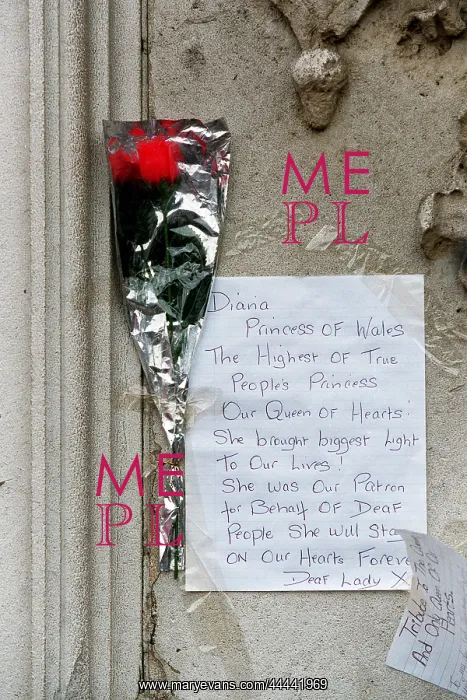 ME
PL
Diana
Princess OF Wales
The Highest OF True
People's Princess
Our Queen OF Hearts!
She brought biggest Light
To Our Lives!
She was Our Patron
for Behalf OF Deaf
People She Will Sta
ON Our Hearts Foreve
Deaf Lady X
ME
PL
Tribute to
And Only Queen Of Our
Hearts.
www.maryevans.com/44441969